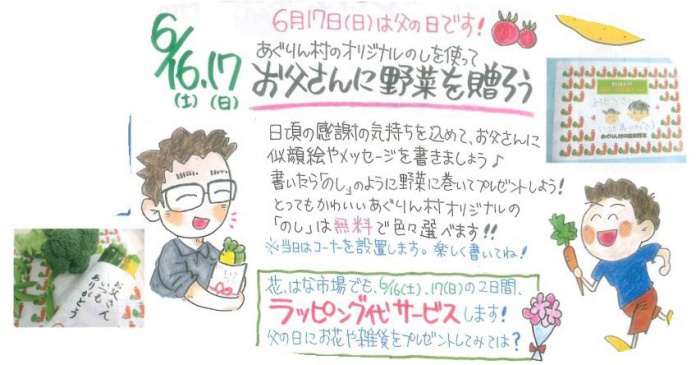 6/16.17
(土)(日)
6月17日(日)は父の日です!
あぐりん村のオリジナルのしを使って
お父さんに野菜を贈ろう
日頃の感謝の気持ちを込めて、お父さんに
似顔絵やメッセージを書きましょう♪
書いたら「のし」のように野菜に巻いてプレゼントしよう!
とってもかわいいあぐりん村オリジナルの
「のし」は無料で色々選べます!!
※当日はコーナーを設置します。楽しく書いてね!
花、はな市場でも、6/16(土)、17(日)の2日間、
ラッピング代サービスします!
父の日にお花や雑貨をプレゼントしてみては?
お父さん
いつも
ありがとう